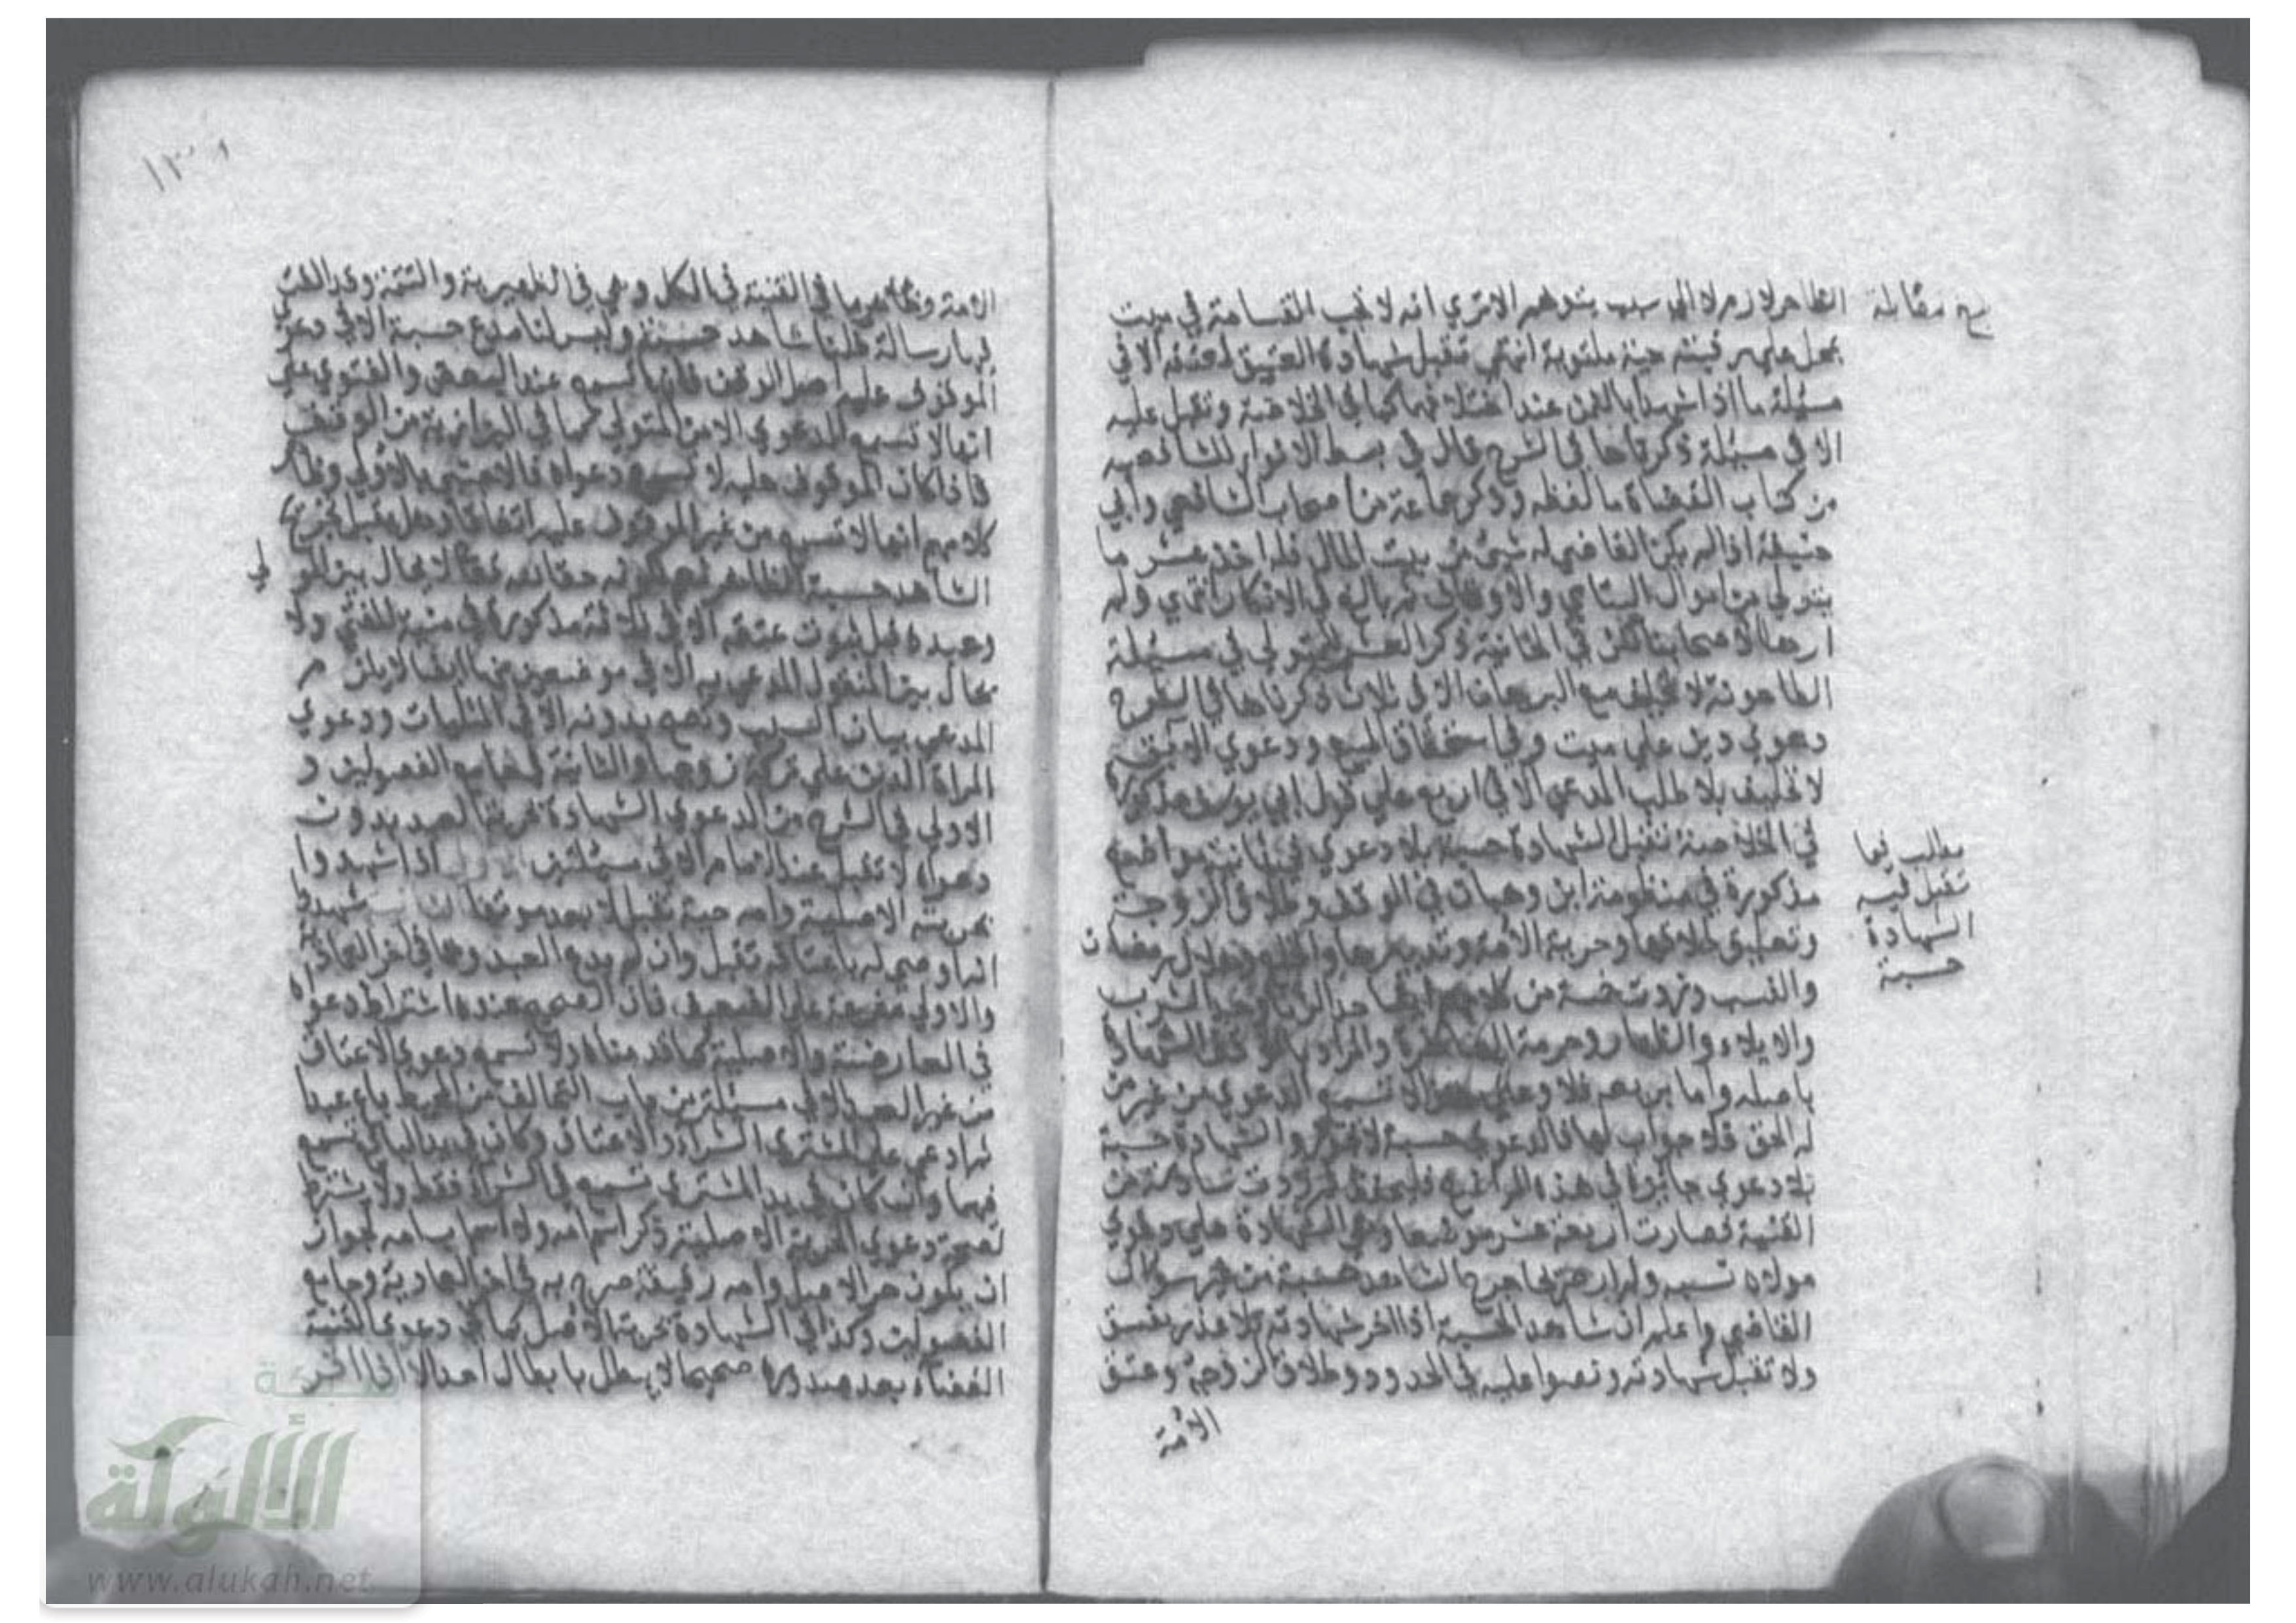 بلغ مقابلة
الظاهر لازم لا الى سبب يتوهم الا ترى انه لا تجب القسامة في ميت
بمحل على رقبته حية ملتوية انتهى تقبل شهادة العتيق لمعتقه الا في
مسئلة ما اذا شهدا بالثمن عند اختلافهما كما في الخلاصة وتقبل عليه
الا في مسئلة ذكرناها في الشرح قال في بسط الانوار للشافعية
من كتاب القضاة ما لفظه وذكر جماعة من اصحاب الشافعي وابي
حنيفة اذا لم يكن للقاضي له شيء من بيت المال فله اخذ عشر ما
يتولى من اموال اليتامي والاوقاف ثم بالغ في الانكار انتهى ولم
ار هذا لاصحابنا لكن في الخانية ذكر العشر للمتولي في مسئلة
الطاحونة لا تحليف مع البرهان الا في ثلاث ذكرناها في الشرح
دعوى دين على ميت وفي استحقاق المبيع ودعوى الابق
لا تحليف بلا طلب المدعي الا في اربع على قول ابي يوسف مذكورة
في الخلاصة تقبل الشهادة حسبة بلا دعوى في ثمانية مواضع
مذكورة في منظومة ابن وهبان في الوقف وطلاق الزوجة
وتعليق طلاقها وحرية الامة وتدبيرها والخلع وهلال رمضان
والنسب وزدت خمسة من كلامهم ايضا حد الزنا وحد الشرب
والايلاء والظهار وحرمة المصاهرة والمراد بالوقف الشهادة
باصله واما بريعه فلا وعلى هذا لا تسمع الدعوى من غير من
له الحق فلا جواب لها فالدعوى حسبة لا تجوز والشهادة حسبة
بلا دعوى جائزة في هذه المواضع فليحفظ ثم زدت سادسة من
القنية فصارت اربعة عشر موضعا وهي الشهادة على دعوى
مولاه نسبه ولم ار صريحا جرح الشاهد حسبة من غير سؤال
القاضي واعلم ان شاهد الحسبة اذا اخر شهادته بلا عذر يفسق
ولا تقبل شهادته ونصوا عليه في الحدود وطلاق الزوجة وعتق
الامة
مطلب فيما
تقبل فيه
الشهادة
حسبة
الامة وظاهر ما في القنية في الكل وهي في الظهيرية واليتيمة وقد الفت
فيها رسالة قلنا شاهد حسبة وليس لنا مدع حسبة الا في دعوى
الموقوف عليه اصل الوقف فانها تسمع عند البعض والفتوى على
انها لا تسمع الدعوى الا من المتولي كما في البزازية من الوقف
فاذا كان الموقوف عليه لا تسمع دعواه فالاجنبي بالاولى وظاهر
كلامهم انها لا تسمع من غير الموقوف عليه اتفاقا وهل يقبل تجريح
الشاهد حسبة الظاهر نعم لكونه حقا لله تعالى لا يحال بين المولى
وعبده قبل ثبوت عتقه الا في ثلاثة مذكورة في منية المفتي ولا
يحال بين المنقول المدعى به الا في موضعين منها ايضا لا يلزم
المدعي بيان السبب وتصح بدونه الا في المثليات ودعوى
المراة الدين على تركة زوجها والثانية في جامع الفصولين و
الاولى في الشرح من الدعوى الشهادة بحرية العبد بدون
دعواه لا تقبل عند الامام الا في مسئلتين اذا شهدوا
بحريته الاصلية وامه حية تقبل لا بعد موتها شهدوا
انه اوصى له باعتاقه تقبل وان لم يدع العبد وهما في اخر العمادية
والاولى مفرعة على الضعيف فان الصحيح عنده اشتراط دعواه
في العارضة والاصلية كما قدمناه ولا تسمع دعوى الاعتاق
من غير العبد الا في مسئلة من باب التحالف من المحيط باع عبدا
ثم ادعى على المشتري الشراء والاعتاق وكان في يد البائع تسمع
فيهما وان كان في يد المشتري تسمع في الشراء فقط ولا يشترط
لصحة دعوى الحرية الاصلية ذكر اسم امه ولا اسم اب امه لجواز
ان يكون حر الاصل وامه رقيقة صرح به في اخر العمادية وجامع
الفصولين وكذا في الشهادة بحرية الاصل كما في دعوى القنية
القضاء بعد صدوره صحيحا لا يبطل بابطال احد الا اذا اقر
شبكة
الألوكة
www.alukah.net